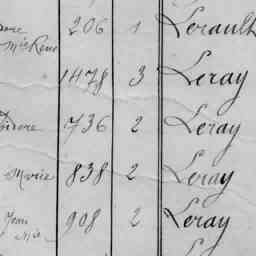 206 1 Lerault
Mie René
1478 3 Leray
Isidore 736 2 Leray
Marie 838 2 Leray
Jean 908 2 Leray
Mie